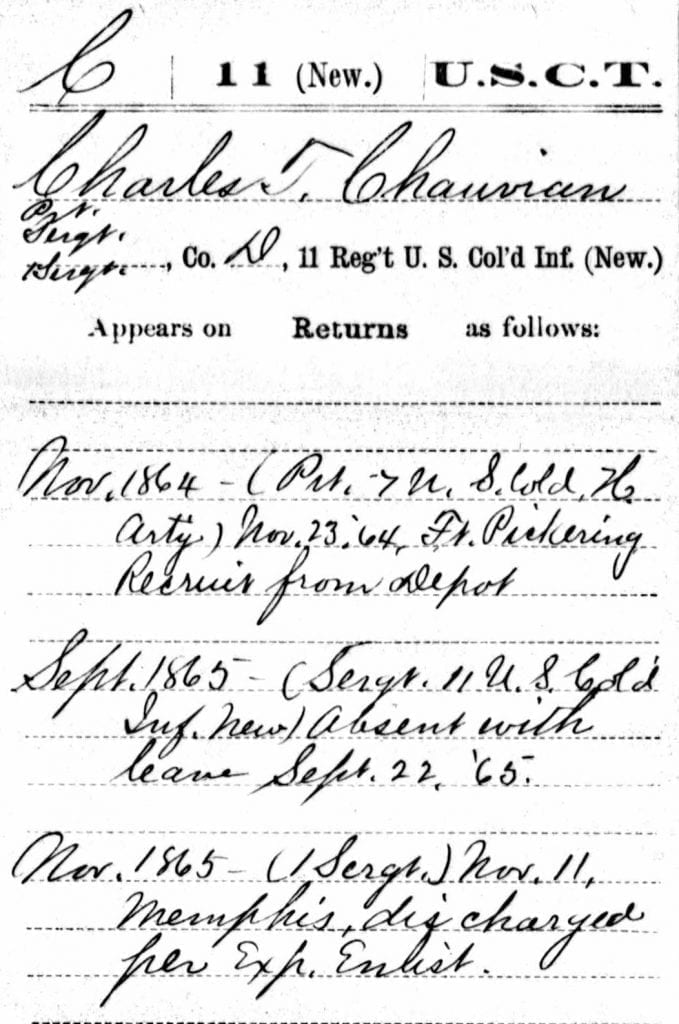 C | 11 (New.) | U.S.C.T.
Charles T. Chauvian
Pvt.
Sergt.
1 Sergt., Co. D, 11 Reg't U. S. Col'd Inf. (New.)
Appears on Returns as follows:
Nov. 1864 - (Pvt. 7 U. S. Cold. H.
Arty) Nov. 23, '64, Ft. Pickering
Recruit from Depot
Sept. 1865 - (Sergt. 11 U. S. Col'd
Inf. New) Absent with
leave Sept. 22, '65.
Nov. 1865 - (1 Sergt.) Nov. 11,
Memphis, discharged
per Exp. Enlist.